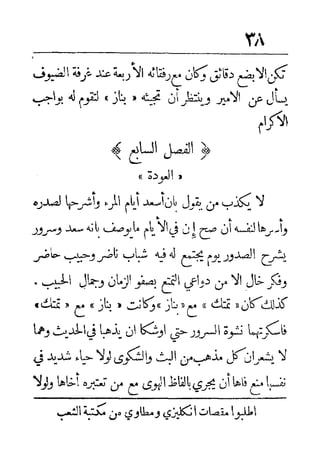 ٣٨
تكن الا بضع دقائق وكان مع رفقائه الأربعة عند غرفة الضيوف
يسأل عن الامير وينتظر أن تجيئه « بناز » لتقوم له بواجب
الاكرام
﴿ الفصل السابع ﴾
« العودة »
لا يكذب من يقول بان أسعد أيام المرء وأشرحها لصدره
وأسرها لنفسه أن صح إن في الأيام ما يوصف بانه سعد وسرور
يشرح الصدور يوم يجتمع له فيه شباب ناضر وحبيب حاضر
وفكر خال الا من دواعي التمتع بصفو الزمان وجمال الحبيب .
كذلك كان « تمتك » مع « بناز » وكانت « بناز » مع « تمتك »
فاسكرتهما نشوة السرور حتي اوشكا ان يذهبا في الحديث وهما
لا يشعران كل مذهب من البث والشكوى لولا حياء شديد في
نفسها منع فاها أن يجري بالفاظ الهوى مع من تعتبره أخاها ولولا
اطلبوا مقصات انكليزي ومطاوي من مكتبة الشعب